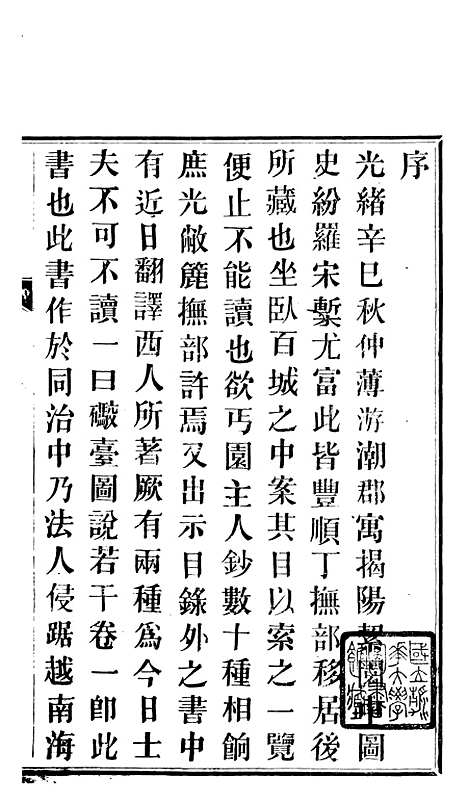 序
光緒辛巳秋仲薄游潮郡寓揭陽絜園中圖
史紛羅宋槧尤富此皆豐順丁撫部移居後
所藏也坐臥百城之中案其目以索之一覽
便止不能讀也欲丐園主人鈔數十種相餉
庶光敝簏撫部許焉又出示目錄外之書中
有近日翻譯西人所著厥有兩種為今日士
夫不可不讀一曰礮臺圖說若干卷一卽此
書也此書作於同治中乃法人侵踞越南海